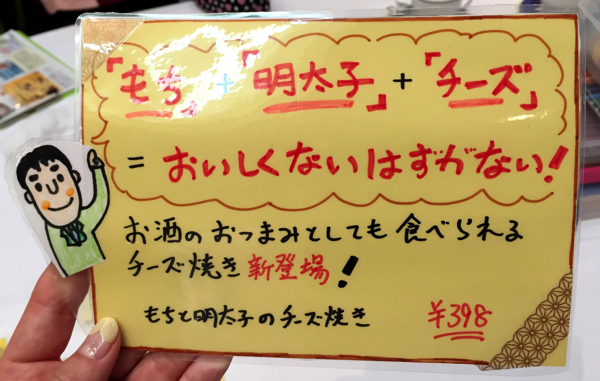 「もち」+「明太子」+「チーズ」
= おいしくないはずがない!
お酒のおつまみとしても食べられる
チーズ焼き 新登場!
もちと明太子のチーズ焼き ¥398